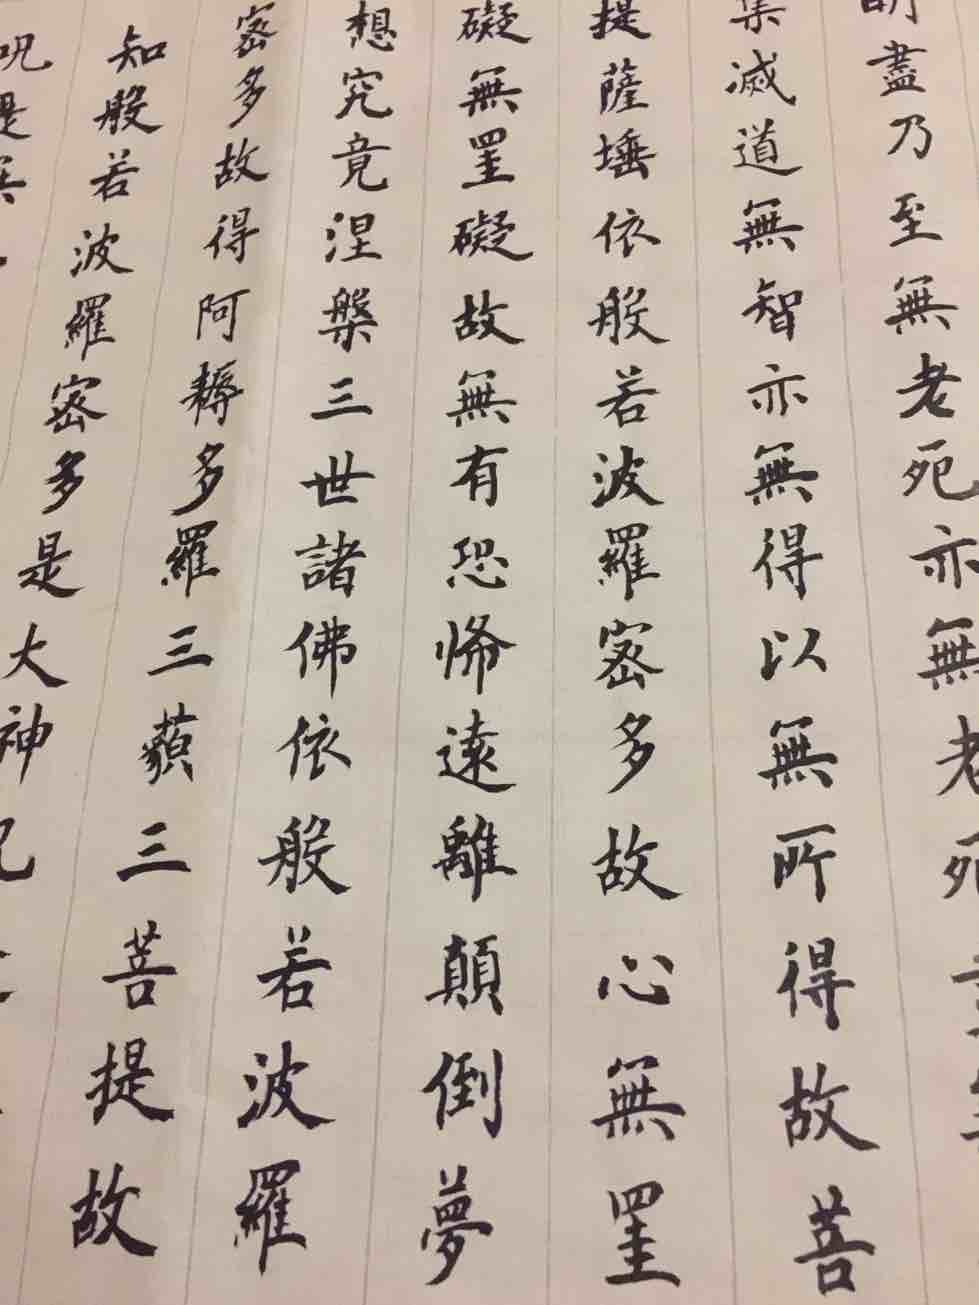 明盡乃至無老死亦無老死
集滅道無智亦無得以無所得故菩
提薩埵依般若波羅密多故心無罣
礙無罣礙故無有恐怖遠離顛倒夢
想究竟涅槃三世諸佛依般若波羅
密多故得阿耨多羅三藐三菩提故
知般若波羅密多是大神呪
呪是無